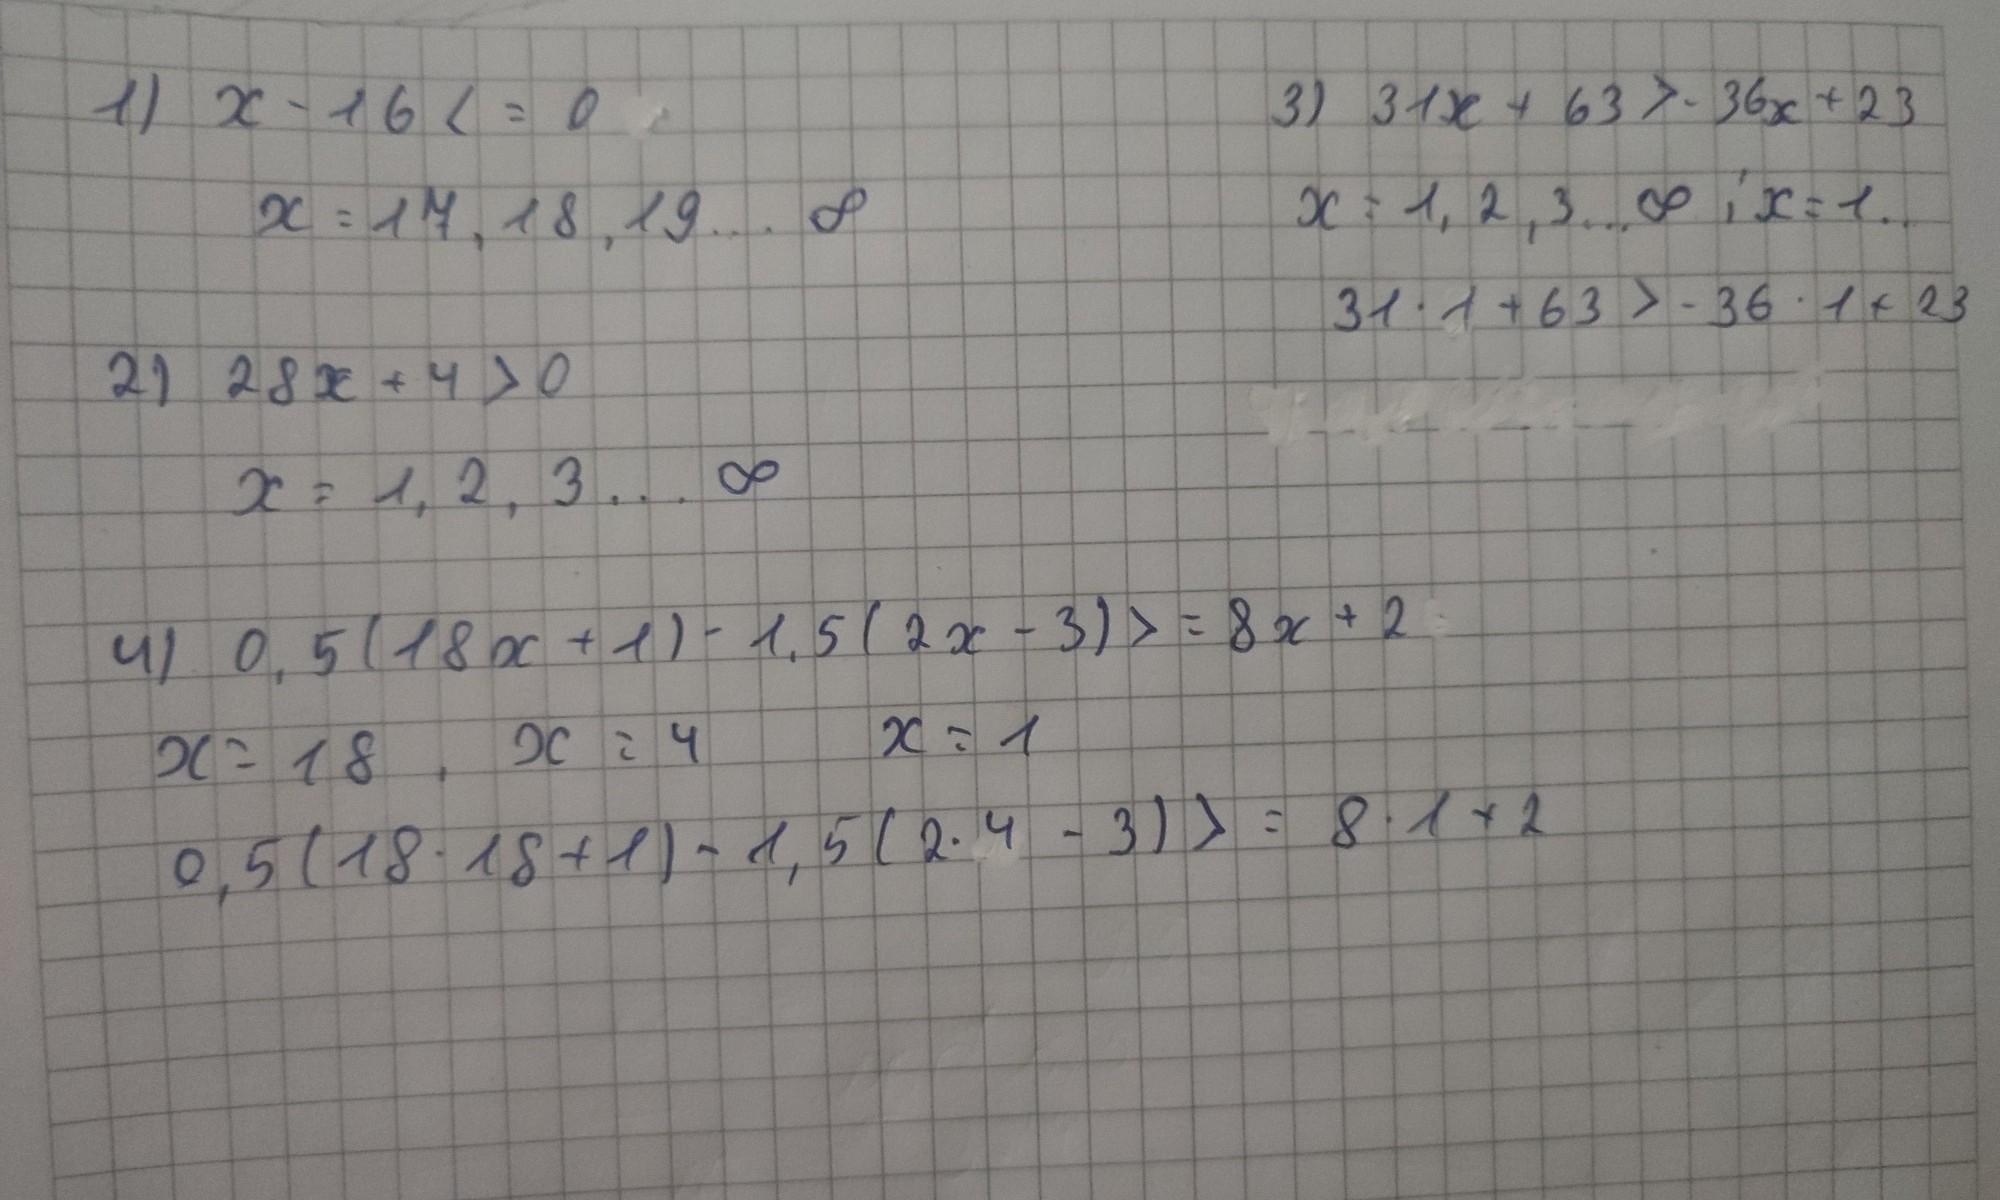 1) x - 16 < = 0
x = 17, 18, 19... ∞
2) 28x + 4 > 0
x = 1, 2, 3... ∞
3) 31x + 63 > - 36x + 23
x = 1, 2, 3... ∞ ; x = 1..
31 · 1 + 63 > - 36 · 1 + 23
4) 0,5(18x + 1) - 1,5(2x - 3) > = 8x + 2
x = 18, x = 4 x = 1
0,5(18 · 18 + 1) - 1,5(2 · 4 - 3) > = 8 · 1 + 2